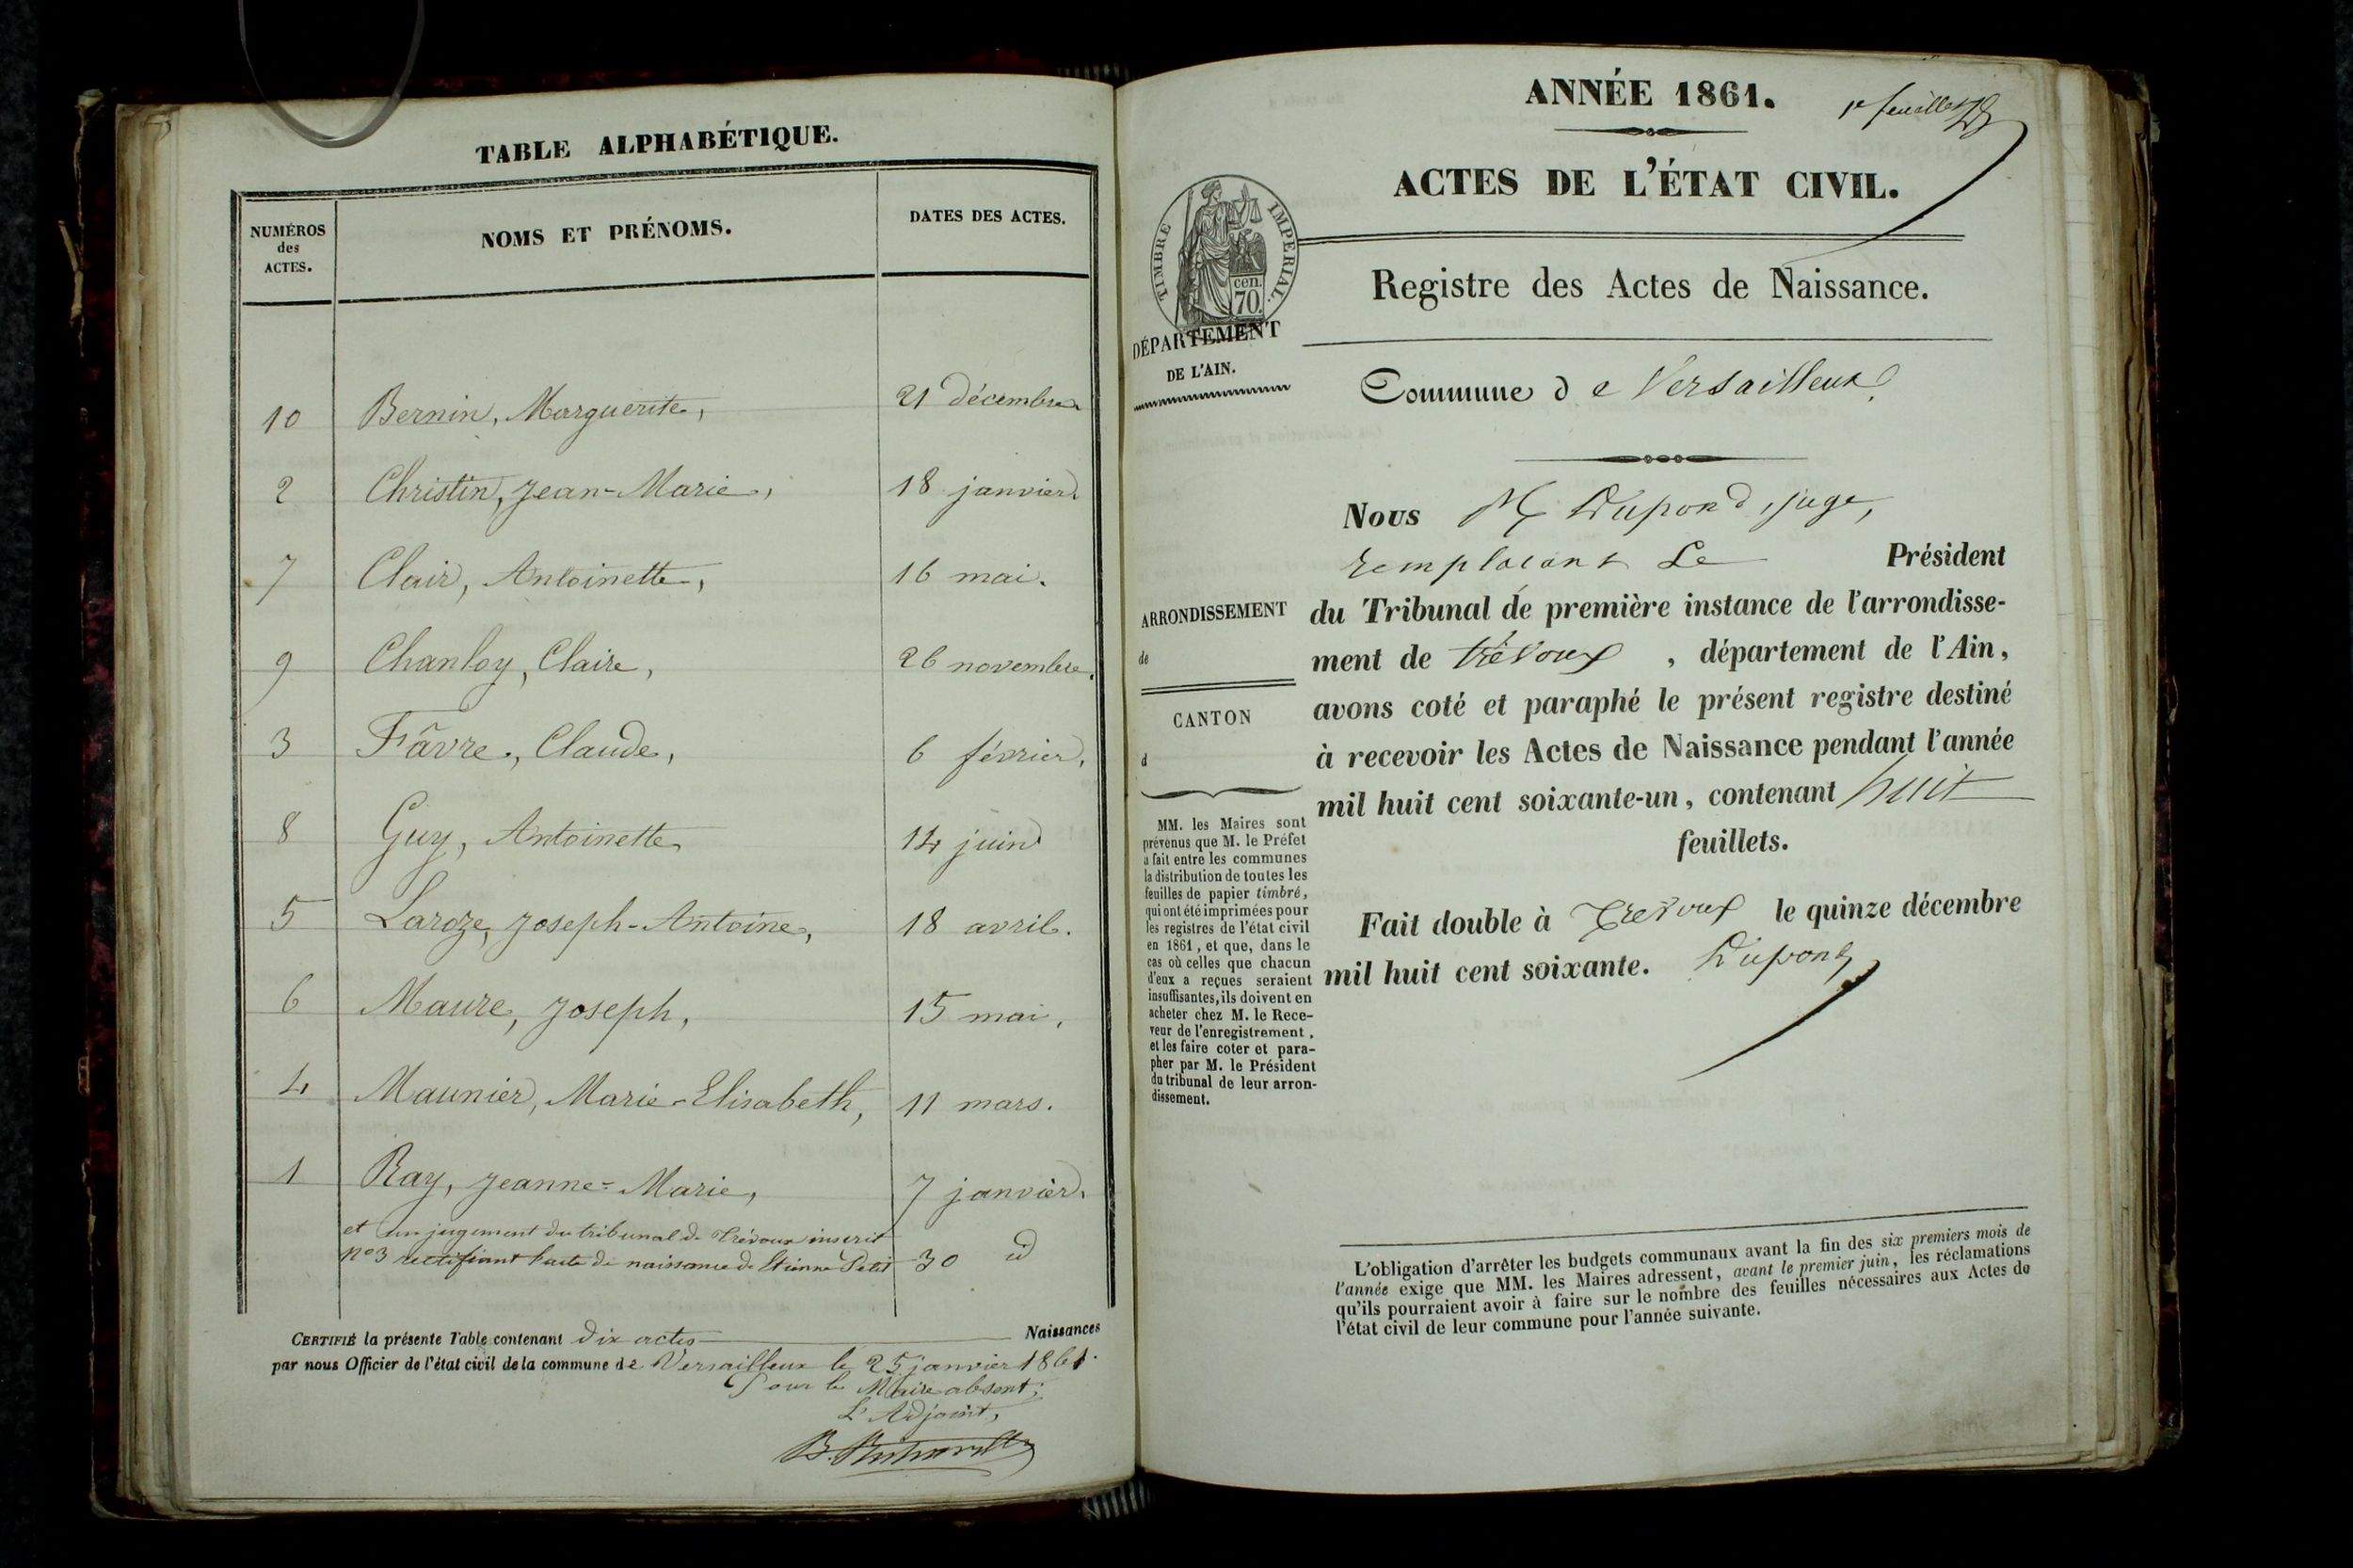 TABLE ALPHABÉTIQUE.
NUMÉROS
des
ACTES.
NOMS ET PRÉNOMS.
DATES DES ACTES.
10 Bernin, Marguerite, 21 décembre
2 Christin, Jean-Marie, 18 janvier.
7 Clair, Antoinette, 16 mai.
9 Chanloy, Claire, 26 novembre.
3 Fâvre, Claude, 6 février.
8 Guy, Antoinette 14 juin
5 Laroze, Joseph-Antoine, 18 avril.
6 Maure, Joseph, 15 mai.
4 Maunier, Marie-Elisabeth, 11 mars.
1 Ray, Jeanne-Marie, 7 janvier.
et un jugement du tribunal de Trévoux inscrit
n° 3 rectifiant l'acte de naissance de Etienne Petit 30 id
CERTIFIÉ la présente Table contenant dix actes Naissances
par nous Officier de l'état civil de la commune de Versailleux le 25 janvier 1861.
Pour le Maire absent;
L'Adjoint,
ANNÉE 1861.
1er feuillet
ACTES DE L'ÉTAT CIVIL.
TIMBRE IMPERIAL.
cen.
70.
DÉPARTEMENT
DE L'AIN.
Registre des Actes de Naissance.
Commune de Versailleux
Nous M Dupond, juge,
remplacant Le Président
du Tribunal de première instance de l'arrondisse-
ment de trévoux , département de l'Ain,
avons coté et paraphé le présent registre destiné
à recevoir les Actes de Naissance pendant l'année
mil huit cent soixante-un, contenant huit
feuillets.
Fait double à Trevoux le quinze décembre
mil huit cent soixante. Dupond
ARRONDISSEMENT
de
CANTON
d
MM. les Maires sont
prévenus que M. le Préfet
a fait entre les communes
la distribution de toutes les
feuilles de papier timbré,
qui ont été imprimées pour
les registres de l'état civil
en 1861, et que, dans le
cas où celles que chacun
d'eux a reçues seraient
insuffisantes, ils doivent en
acheter chez M. le Rece-
veur de l'enregistrement,
et les faire coter et para-
pher par M. le Président
du tribunal de leur arron-
dissement.
L'obligation d'arrêter les budgets communaux avant la fin des six premiers mois de
l'année exige que MM. les Maires adressent, avant le premier juin, les réclamations
qu'ils pourraient avoir à faire sur le nombre des feuilles nécessaires aux Actes de
l'état civil de leur commune pour l'année suivante.